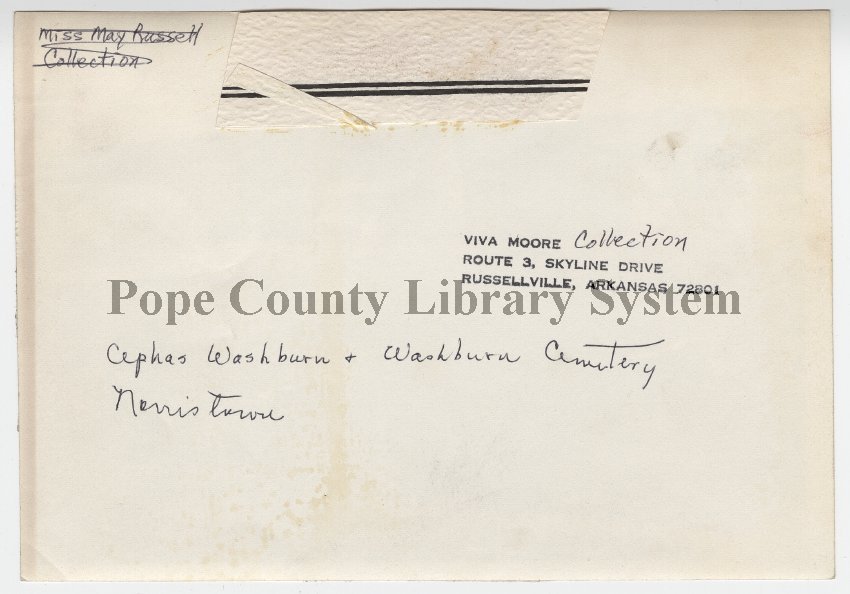 Miss May Russell
Collection
VIVA MOORE Collection
ROUTE 3, SKYLINE DRIVE
RUSSELLVILLE, ARKANSAS 72801
Pope County Library System
Cephas Washburn + Washburn Cemetery
Norristown